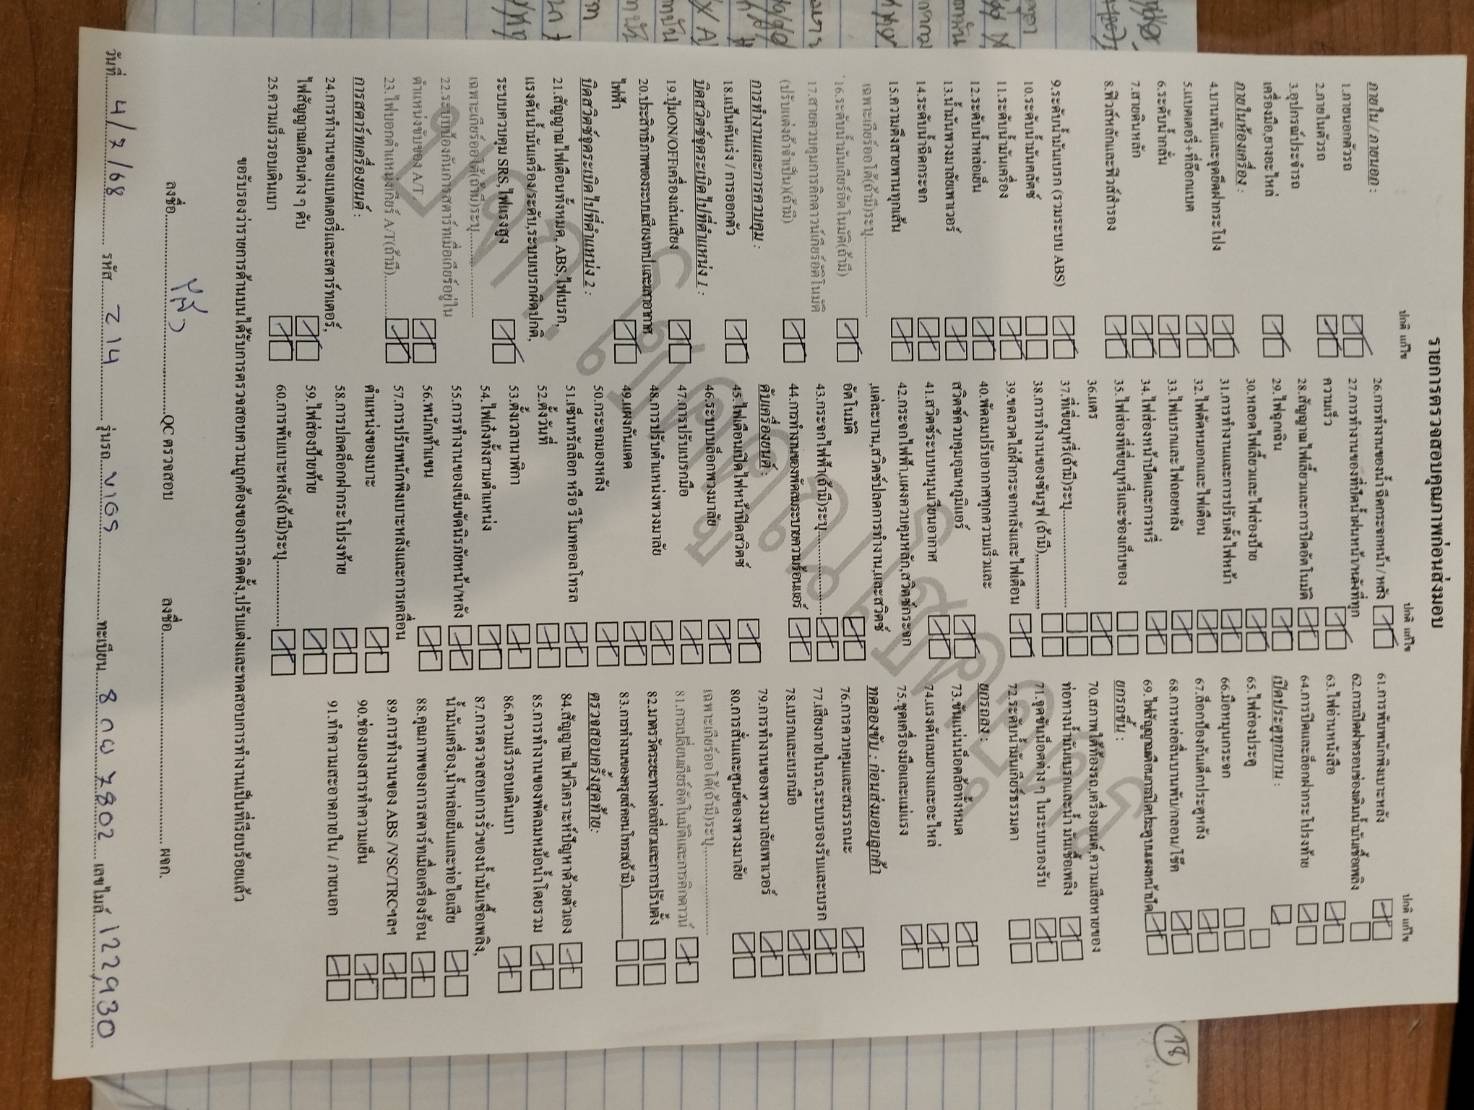 รายการตรวจสอบคุณภาพก่อนส่งมอบ
ปกติ แก้ไข
ภายใน / ภายนอก :
1.ภายนอกตัวรถ
2.ภายในตัวรถ
3.อุปกรณ์ประจำรถ
เครื่องมือ,ยางอะไหล่
ภายในห้องเครื่อง :
4.บานพับและจุดยึดฝากระโปรง
5.แบตเตอรี่+ที่ล็อกแบต
6.ระดับน้ำกลั่น
7.สายดินหลัก
8.ฟิวส์หลักและฟิวส์สำรอง
9.ระดับน้ำมันเบรก (รวมระบบ ABS)
10.ระดับน้ำมันคลัตช์
11.ระดับน้ำมันเครื่อง
12.ระดับน้ำหล่อเย็น
13.น้ำมันพวงมาลัยพาวเวอร์
14.ระดับน้ำฉีดกระจก
15.ความตึงสายพานทุกเส้น
เฉพาะเกียร์ออโต้(ถ้ามี)ระบุ
16.ระดับน้ำมันเกียร์อัตโนมัติ(ถ้ามี)
17.สายควบคุมการคิกดาวน์เกียร์อัตโนมัติ
(ปรับแต่งถ้าจำเป็น)(ถ้ามี)
การทำงานและการควบคุม :
18.แป้นคันเร่ง / การออกตัว
บิดสวิตช์จุดระเบิดไปที่ตำแหน่ง 1 :
19.ปุ่มON/OFFเครื่องเล่นเสียง
20.ประสิทธิภาพของระบบเสียงเทปและเสาอากาศ
ไฟฟ้า
บิดสวิตช์จุดระเบิดไปที่ตำแหน่ง 2 :
21.สัญญาณไฟเตือนทั้งหมด, ABS,ไฟเบรก,
แรงดันน้ำมันเครื่อง/ระดับ,ระบบเบรกผิดปกติ,
ระบบควบคุม SRS, ไฟแรงสูง
เฉพาะเกียร์ออโต้(ถ้ามี)ระบุ
22.ระบบป้องกันการสตาร์ทเมื่อเกียร์อยู่ใน
ตำแหน่งขับของ A/T
23.ไฟบอกตำแหน่งเกียร์ A/T(ถ้ามี)
การสตาร์ทเครื่องยนต์ :
24.การทำงานของแบตเตอรี่และสตาร์ทเตอร์,
ไฟสัญญาณเตือนต่าง ๆ ดับ
25.ความเร็วรอบเดินเบา
ปกติ แก้ไข
26.การทำงานของน้ำฉีดกระจกหน้า / หลัง
27.การทำงานของที่ปัดน้ำฝนหน้า/หลังที่ทุก
ความเร็ว
28.สัญญาณไฟเลี้ยวและการปิดอัตโนมัติ
29.ไฟฉุกเฉิน
30.หลอดไฟเลี้ยวและไฟส่องป้าย
31.การทำงานและการปรับตั้งไฟหน้า
32.ไฟตัดหมอกและไฟเตือน
33.ไฟเบรกและไฟถอยหลัง
34.ไฟส่องหน้าปัดและการหรี่
35.ไฟส่องที่เขี่ยบุหรี่และช่องเก็บของ
36.แตร
37.ที่เขี่ยบุหรี่(ถ้ามี)ระบุ
38.การทำงานของซันรูฟ (ถ้ามี)
39.ขดลวดไล่ฝ้ากระจกหลังและไฟเตือน
40.พัดลมปรับอากาศทุกความเร็วและ
สวิตช์ควบคุมอุณหภูมิแอร์
41.สวิตช์ระบบหมุนเวียนอากาศ
42.กระจกไฟฟ้า,แผงควบคุมหลัก,สวิตช์กระจก
แต่ละบาน,สวิตช์ปลดการทำงาน,และสวิตช์
อัตโนมัติ
43.กระจกไฟฟ้า(ถ้ามี)ระบุ
44.การทำงานของพัดลมระบายความร้อนแอร์
ดับเครื่องยนต์ :
45.ไฟเตือนเปิดไฟหน้าปิดสวิตช์
46.ระบบบล็อกพวงมาลัย
47.การปรับเบรกมือ
48.การปรับตำแหน่งพวงมาลัย
49.แผงกันแดด
50.กระจกมองหลัง
51.เซ็นทรัลล็อก หรือ รีโมทคอลโทรล
52.ตั้งวันที่
53.ตั้งเวลานาฬิกา
54.ไฟเก๋งทั้งสามตำแหน่ง
55.การทำงานของเข็มขัดนิรภัยหน้า/หลัง
56.พนักเท้าแขน
57.การปรับพนักพิงเบาะหลังและการเคลื่อน
ตำแหน่งของเบาะ
58.การปลดล็อกฝากระโปรงท้าย
59.ไฟส่องป้ายท้าย
60.การพับเบาะหลัง(ถ้ามี)ระบุ
ปกติ แก้ไข
61.การพับพนักพิงเบาะหลัง
62.การเปิดฝาครอบช่องเติมน้ำมันเชื้อเพลิง
63.ไฟอ่านหนังสือ
64.การปิดและล็อกฝากระโปรงท้าย
เปิดประตูทุกบาน :
65.ไฟส่องประตู
66.มือหมุนกระจก
67.ล็อกป้องกันเด็กประตูหลัง
68.การหล่อลื่นบานพับ/กลอน/โช๊ค
69.ไฟสัญญาณเตือนการปิดประตูบนแผงหน้าปัด
ยกรถขึ้น :
70.สภาพใต้ท้องรถ,เครื่องยนต์,ความเสียหายของ
ท่อทางน้ำมันเบรกและน้ำมันเชื้อเพลิง
71.จุดขันน็อตต่าง ๆ ในระบบรองรับ
72.ระดับน้ำมันเกียร์ธรรมดา
ยกรถลง :
73.ขันแน่นน็อตล้อทั้งหมด
74.แรงดันลมยางและอะไหล่
75.ชุดเครื่องมือและแม่แรง
ทดลองขับ : ก่อนส่งมอบลูกค้า
76.การควบคุมและสมรรถนะ
77.เสียงภายในรถ,ระบบรองรับและเบรก
78.เบรกและเบรกมือ
79.การทำงานของพวงมาลัยเพาเวอร์
80.การสั่นและศูนย์ของพวงมาลัย
เฉพาะเกียร์ออโต้(ถ้ามี)ระบุ
81.การเปลี่ยนเกียร์อัตโนมัติและการคิกดาวน์
82.มาตรวัดระยะทางต่อเที่ยวและการปรับตั้ง
83.การทำงานของครูซส์คอนโทรล(ถ้ามี)
ตรวจสอบครั้งสุดท้าย:
84.สัญญาณไฟวิเคราะห์ปัญหาด้วยตัวเอง
85.การทำงานของพัดลมหม้อน้ำโดยรวม
86.ความเร็วรอบเดินเบา
87.การตรวจสอบการรั่วของน้ำมันเชื้อเพลิง,
น้ำมันเครื่อง,น้ำหล่อเย็นและท่อไอเสีย
88.คุณภาพของการสตาร์ทเมื่อเครื่องร้อน
89.การทำงานของ ABS /VSC/TRCฯลฯ
90.ช่องมองสารทำความเย็น
91.ทำความสะอาดภายใน / ภายนอก
ขอรับรองว่ารายการด้านบนได้รับการตรวจสอบความถูกต้องของการติดตั้ง,ปรับแต่งและทดสอบการทำงานเป็นที่เรียบร้อยแล้ว
ลงชื่อ QC ตรวจสอบ ลงชื่อ ผจก.
วันที่ 4/7/68 รหัส 214 รุ่นรถ VIGO ทะเบียน 8กผ 7802 เลขไมล์ 122,930
18